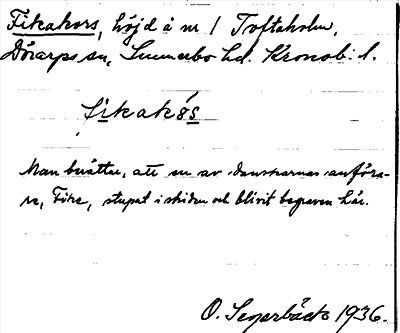 Fikakors, höjd å nr 1 Toftaholm,
Dörarps sn, Sunnerbo hd. Kronob: l.
fikakós
Man berättar, att en av danskarnas anföra-
re, Fike, stupat i striden och blivit begraven här.
O. Segerbäck 1936.